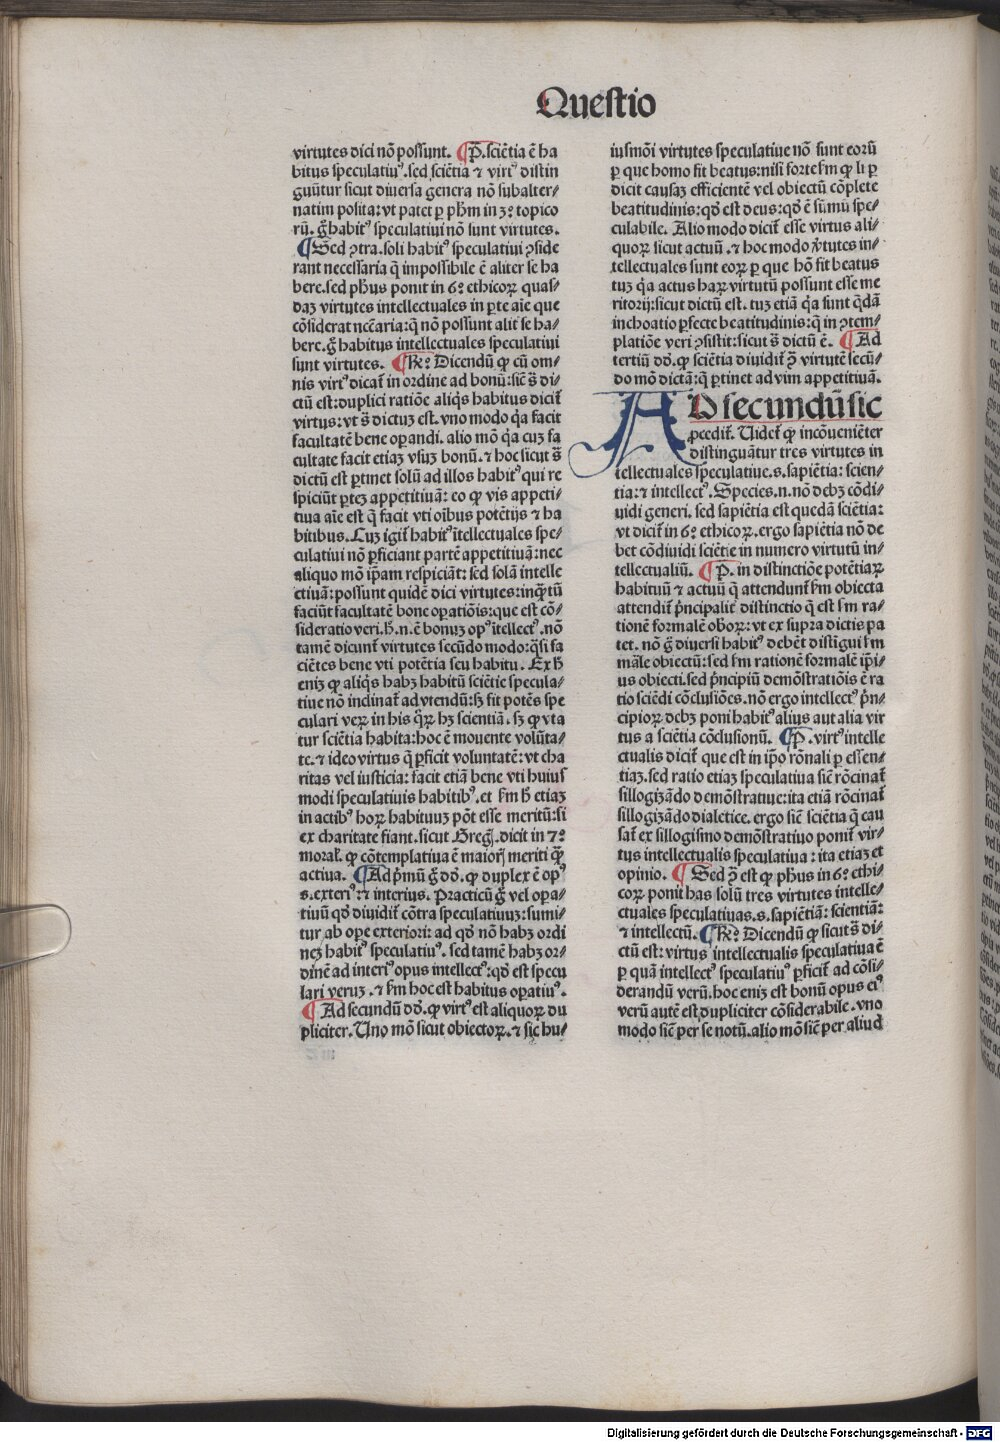 Questio
virtutes dici nō possunt. ¶ P̄. sciētia ē ha
bitus speculatiuꝰ. sed sciētia ⁊ virtꝰ distin
guūtur sicut diuersa genera nō subalter⸗
natim posita: vt patet ꝑ ph̄m in 3º topico
rū. g̊ habitꝰ speculatiui nō sunt virtutes.
¶ Sed ꝯtra. soli habitꝰ speculatiui ꝯside
rant necessaria q̄ impossibile ē aliter se ha
bere. sed ph̄us ponit in 6º ethicoꝝ quas⸗
daꝫ virtutes intellectuales in ꝑte aīe que
cōsiderat nccāria: q̄ nō possunt alit̄ se ha⸗
bere. g̊ habitus intellectuales speculatiui
sunt virtutes. ¶ Rº Dicendū ꝙ cū om⸗
nis virtꝰ dicat̄ in ordine ad bonū: sic̄ s̄ di⸗
ctū est: duplici ratiōe aliq̄s habitus dicit̄
virtus: vt s̄ dictuꝫ est. vno modo q̇a facit
facultatē bene oꝑandi. alio mō q̇a cuꝫ fa
cultate facit etiaꝫ vsuꝫ bonū. ⁊ hoc sicut s̄
dictū est ꝑtinet solū ad illos habitꝰ qui re
spiciūt ꝑteꝫ appetitiuā: eo ꝙ vis appeti⸗
tiua aīe est q̄ facit vti oībus potētijs ⁊ ha
bitibus. Cuꝫ igit̄ habitꝰ ītellectuales spe⸗
culatiui nō ꝑficiant partē appetitiuā: nec
aliquo mō ip̄am respiciāt: sed solā intelle
ctiuā: possunt quidē dici virtutes: inq̄tū
faciūt facultatē bone oꝑatiōis: que est cō⸗
sideratio veri. h̄. n. ē bonuꝫ opꝰ ītellectꝰ. nō
tamē dicunt̄ virtutes secūdo modo: q̄si fa
ciētes bene vti potētia seu habitu. Ex h̄
eniꝫ ꝙ aliq̄s habꝫ habitū sciētie specula⸗
tiue nō inclinat̄ ad vtendū: sꝫ fit potēs spe
culari veꝝ in his q̄ꝝ hꝫ scientiā. sꝫ ꝙ vta
tur sciētia habita: hoc ē mouente volūta⸗
te. ⁊ ideo virtus q̄ ꝑficit voluntatē: vt cha
ritas vel iusticia: facit etiā bene vti huius
modi speculatiuis habitibꝰ. et ẜm h̄ etiaꝫ
in actibꝰ hoꝝ habituuꝫ pōt esse meritū: si
ex charitate fiant. sicut Greg̃. dicit in 7º
moral̄. ꝙ cōtemplatiua ē maioris meriti ꝙ̄
actiua. ¶ Ad p̄mū g̊ dō. ꝙ duplex ē opꝰ
.s. exteriꝰ ⁊ interius. Practicū g̊ vel oꝑa⸗
tiuū qd̄ diuidit̄ cōtra speculatiuuꝫ: sumi⸗
tur ab oꝑe exteriori: ad qd̄ nō habꝫ ordi
neꝫ habitꝰ speculatiuꝰ. sed tamē habꝫ or⸗
dinē ad interiꝰ opus intellectꝰ: qd̄ est specu
lari veruꝫ. ⁊ ẜm hoc est habitus oꝑatiuꝰ.
¶ Ad secundū dō. ꝙ virtꝰ est aliquoꝝ du
pliciter. Uno mō sicut obiectoꝝ. ⁊ sic hu⸗
iusmōi virtutes speculatiue nō sunt eorū
ꝑ que homo fit beatus: nisi forte ẜm ꝙ li ꝑ
dicit causaꝫ efficientē vel obiectū cōplete
beatitudinis: qd̄ est deus: qd̄ ē sūmū spe⸗
culabile. Alio modo dicit̄ esse virtus ali⸗
quoꝝ sicut actuū. ⁊ hoc modo v̄tutes in⸗
tellectuales sunt eoꝝ ꝑ que hō fit beatus
tuꝫ q̇a actus haꝝ virtutū possunt esse me
ritorij: sicut dictū est. tuꝫ etiā q̇a sunt q̄dā
inchoatio ꝑfecte beatitudinis: q̄ in ꝯtem⸗
platiōe veri ꝯsistit: sicut s̄ dictū ē. ¶ Ad
tertiū dō. ꝙ sciētia diuidit̄ ꝯ̄ virtutē secū⸗
do mō dictā: q̄ ꝑtinet ad vim appetitiuā.
AD secundū sic
ꝓcedit̄. Uidet̄ ꝙ incōueniēter
distinguātur tres virtutes in
tellectuales speculatiue. s. sapiētia: scien⸗
tia: ⁊ intellectꝰ. Species. n. nō debꝫ cōdi⸗
uidi generi. sed sapiētia est quedā sciētia:
vt dicit̄ in 6º ethicoꝝ. ergo sapiētia nō de
bet cōdiuidi sciētie in numero virtutū in⸗
tellectualiū. ¶ P̄. in distinctiōe potētiaꝝ
habituū ⁊ actuū q̄ attendunt̄ ẜm obiecta
attendit̄ p̄ncipalit̄ distinctio q̄ est ẜm ra⸗
tionē formalē ob̄oꝝ: vt ex supra dictis pa
tet. nō g̊ diuersi habitꝰ debēt distīgui ẜm
māle obiectū: sed ẜm rationē formalē ip̄i⸗
us obiecti. sed p̄ncipiū demōstratiōis ē ra
tio sciēdi cōclusiōes. nō ergo intellectꝰ p̄n⸗
cipioꝝ debꝫ poni habitꝰ alius aut alia vir
tus a sciētia cōclusionū. ¶ P̄. virtꝰ intelle
ctualis dicit̄ que est in ip̄o rōnali ꝑ essen⸗
tiaꝫ. sed ratio etiaꝫ speculatiua sic̄ rōcinat̄
sillogizādo demōstratiue: ita etiā rōcinat̄
sillogizādo dialetice. ergo sic̄ sciētia q̄ cau
sat̄ ex sillogismo demōstratiuo ponit̄ vir⸗
tus intellectualis speculatiua: ita etiaꝫ et
opinio. ¶ Sed ꝯ̄ est ꝙ ph̄us in 6º ethi⸗
coꝝ ponit has solū tres virtutes intelle⸗
ctuales speculatiuas. s. sapiētiā: scientiā:
⁊ intellectū. ¶ Rº Dicendū ꝙ sicut s̄ di⸗
ctū est: virtus intellectualis speculatiua ē
ꝑ quā intellectꝰ speculatiuꝰ ꝑficit̄ ad cōsi⸗
derandū verū. hoc eniꝫ est bonū opus eiꝰ
verū autē est dupliciter cōsiderabile. vno
modo sic̄ per se notū. alio mō sic̄ per aliud
Digitalisierung gefördert durch die Deutsche Forschungsgemeinschaft - DFG